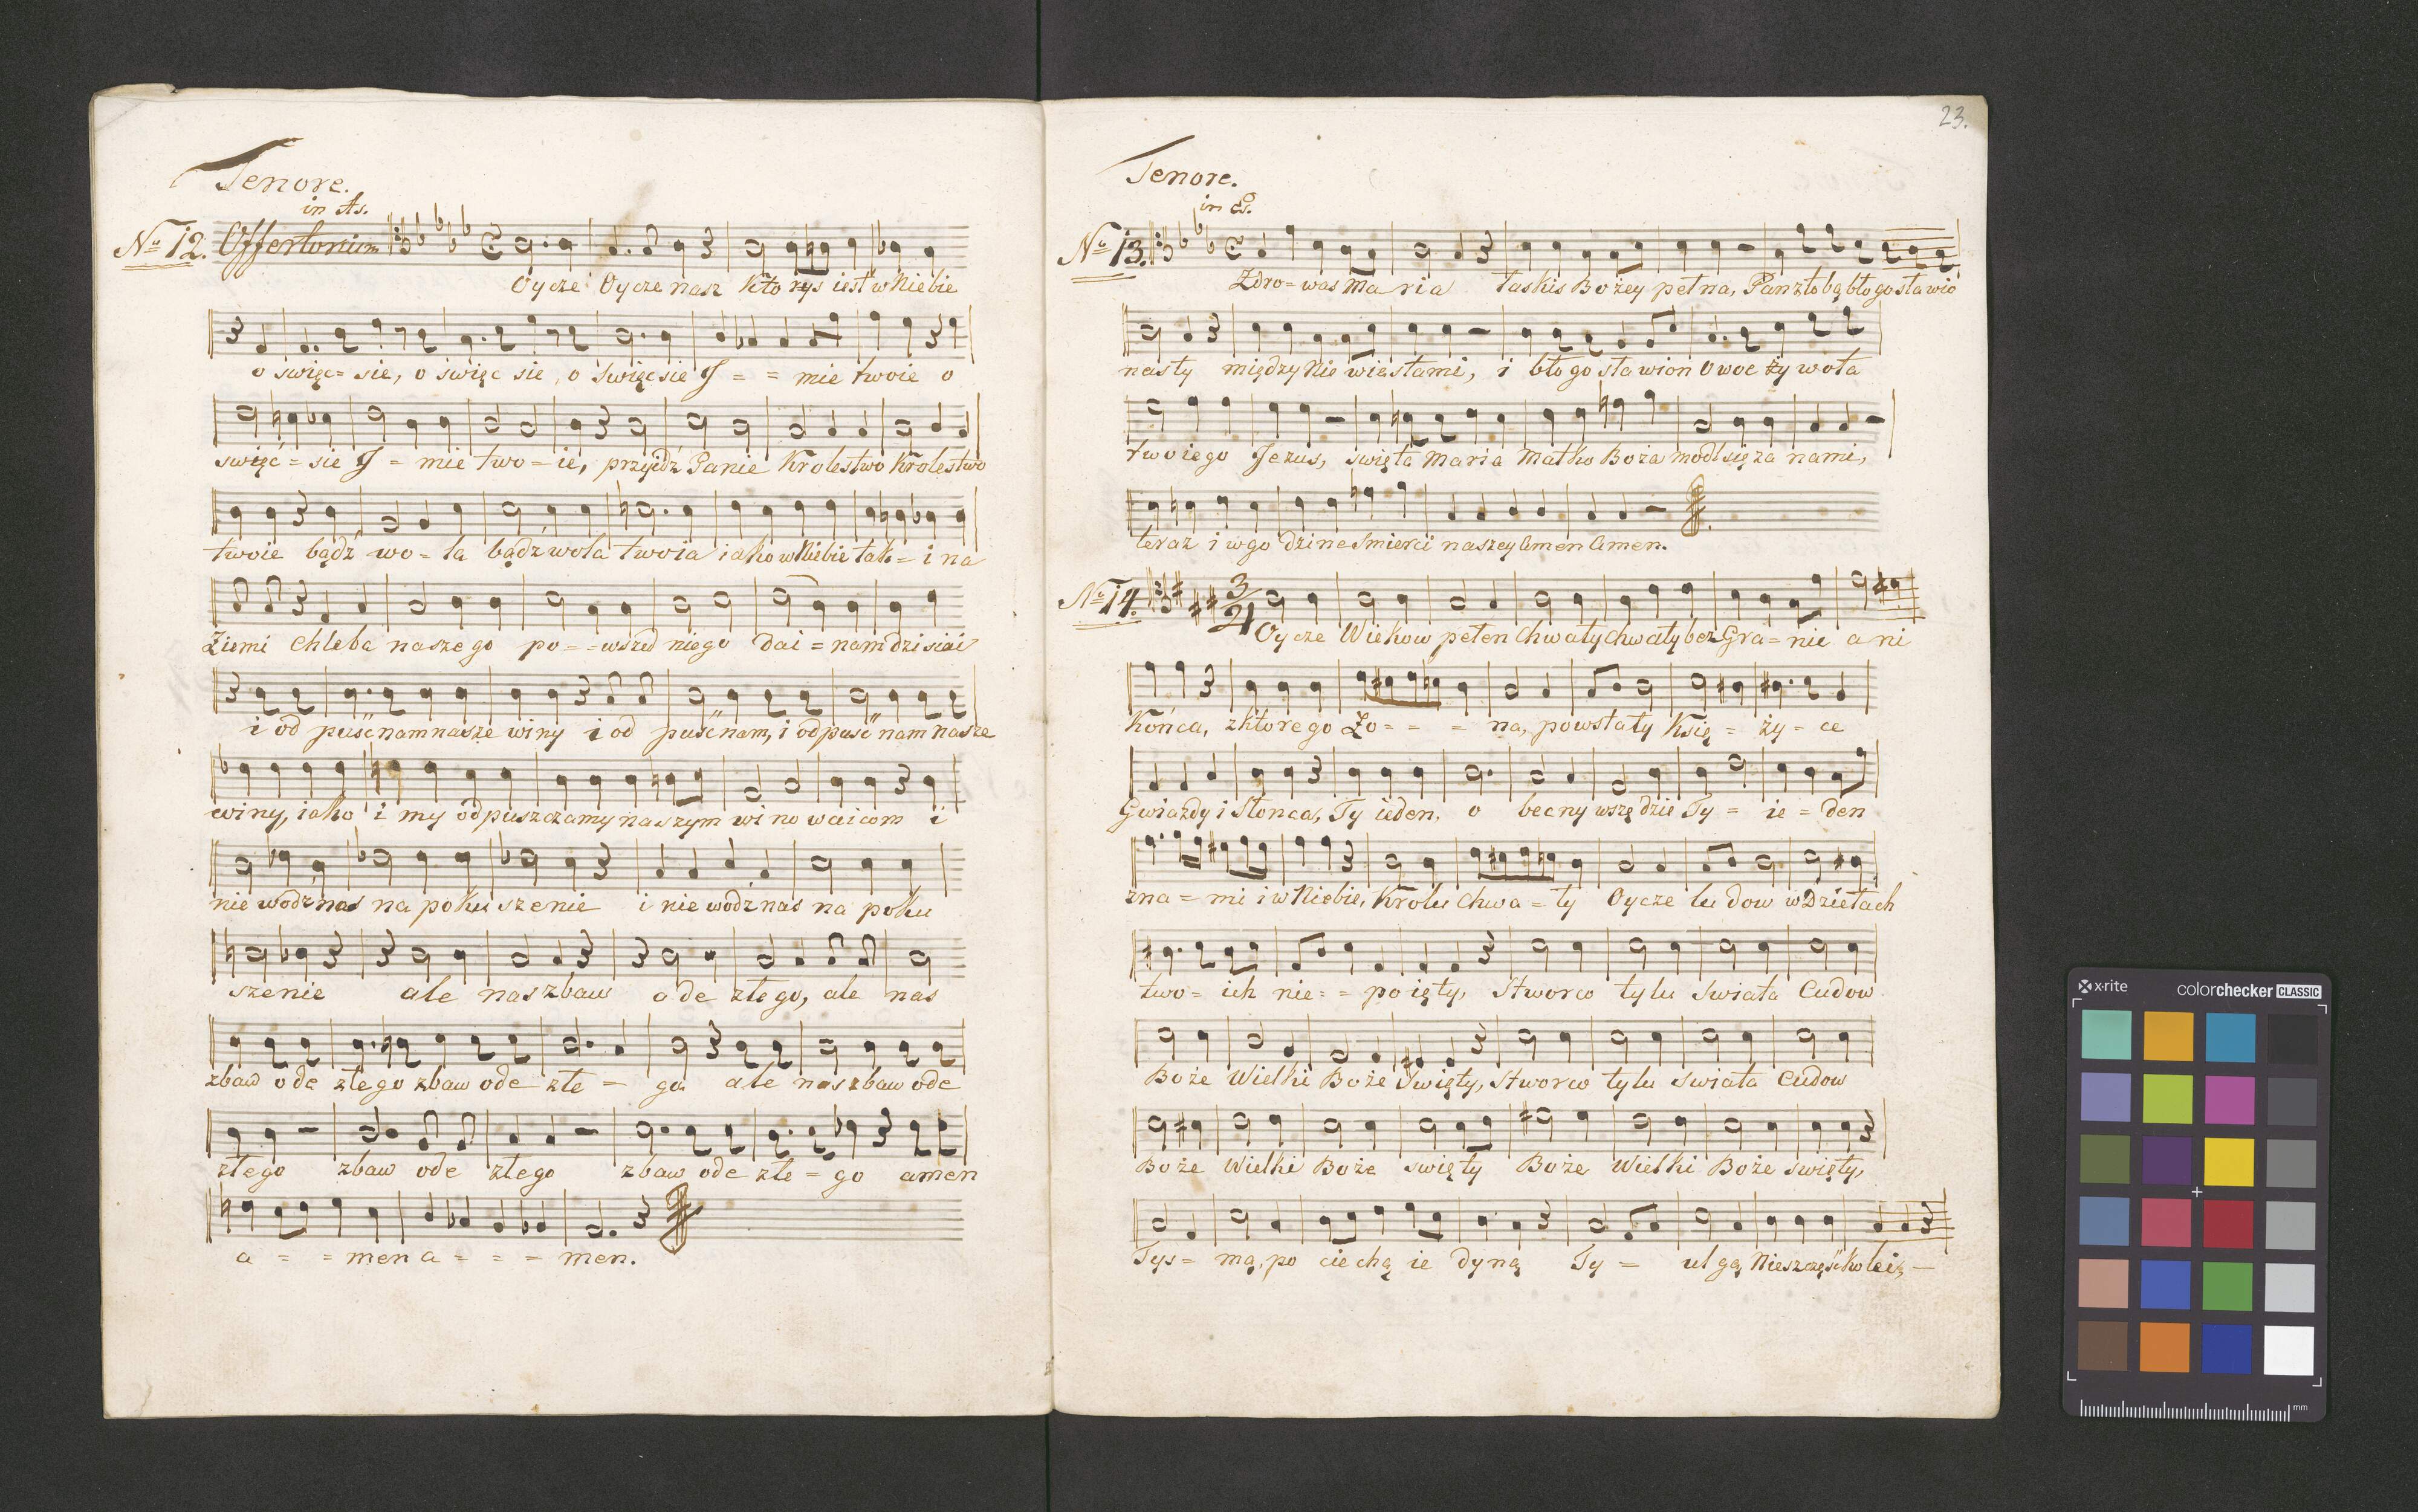 Tenore.
in As.
No 12. Offertorium
Oycze Oycze nasz Kto rys iest w Niebie
o święc = sie, o święc sie, o święc sie J = = mie twoie o
swięć = sie J = mie two = ie, przyidź Panie Krolestwo Krolestwo
twoie bądź wo = la bądź wola twoia iako w Niebie tak = i na
Ziemi Chleba naszego po = = wszed niego dai = nam dzisiai
i od puść nam nasze winy i od puść nam, i odpuść nam nasze
winy, iako i my odpuszczamy naszym wi no waicom i
nie wodź nas na poku szenie i nie wodź nas na poku
szenie ale nas zbaw ode złego, ale nas
zbaw ode złego zbaw ode złe = go ale nas zbaw ode
złego zbaw ode złego zbaw ode złe = go amen
a = = men a = = = men.
23.
Tenore.
in es.
No 13.
Zdro = was Ma ria łaskis Bożey pełna, Pan z tobą błogosławio
nasty między Nie wiastami, i bło go sła wion Owoc ży wota
twoiego Jezus, swięta Maria Matko Boża modl się za nami,
teraz i w go dzine smierci naszey Amen Amen.
No 14.
3/4
Oycze Wiekow pełen Chwały chwały bez Gra = nic a ni
Końca, z ktorego Ło = = = na, powstały Księ = ży = ce
Gwiazdy i Słonca, Ty ieden, o becny wszędzie Ty = ie = den
zna = mi i w Niebie, Krolu Chwa = ły Oycze lu dow w Dziełach
two = ich nie = = po ięty, Stworco tylu swiata Cudow
Boże Wielki Boże Swięty, Stworco tylu swiata Cudow
Boże Wielki Boże swięty Boże Wielki Boże swięty,
Tys = mą, po ciechą ie dyną Ty = ulgą Nieszczęść kolei, —
x·rite
colorchecker CLASSIC
mm